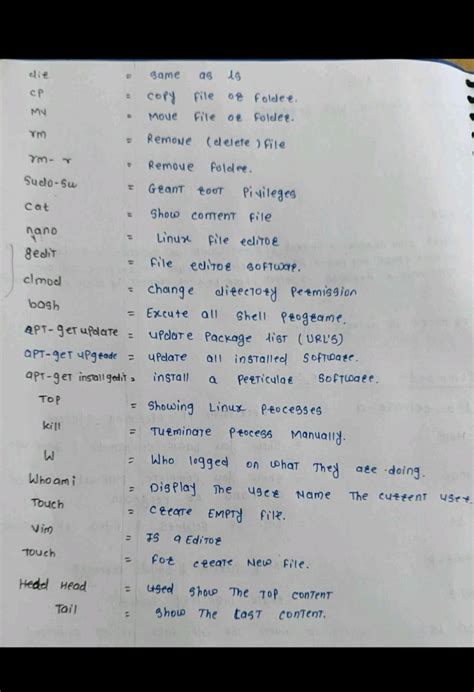 dir = same as ls
cp = copy file or folder.
mv = move file or folder.
rm = Remove (delete) file
rm-r = Remove folder.
Sudo-su = Grant root Pivileges
cat = show content file
nano = Linux file editor
gedit = file editor software.
clmod = change directory permission
bash = Excute all shell programe.
APT-get update = update Package list (URL'S)
apt-get upgrade = update all installed software.
apt-get install gedit = install a perticular software.
TOP = showing Linux processes
kill = Turminate Process Manually.
W = Who logged on what they are doing.
Whoami = Display The user Name The current user.
Touch = create EMPTY file.
Vim = IS a Editor
touch = for create New file.
Head = used show The TOP content
Tail = show The last content.